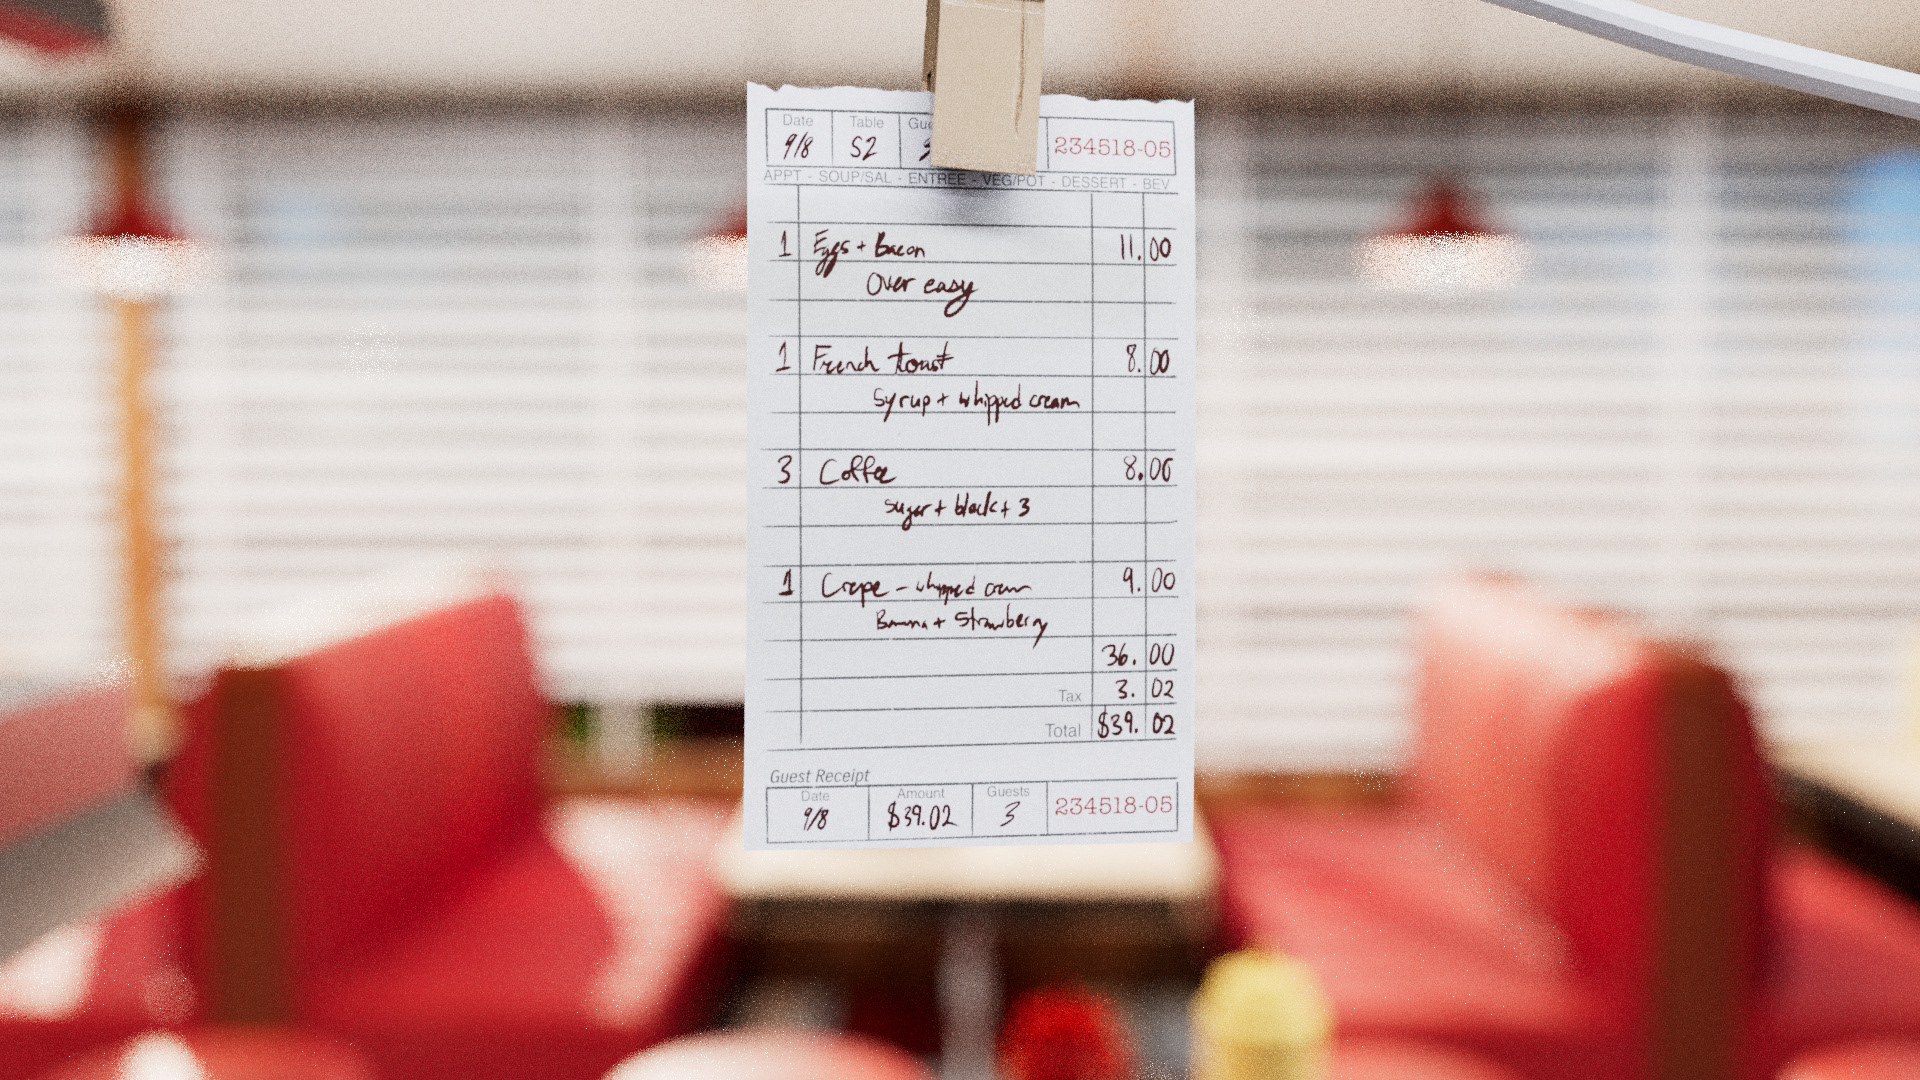 Date Table
9/8 S2 234518-05
APPT - SOUP/SAL - ENTREE - VEG/POT - DESSERT - BEV
1 Eggs + Bacon 11.00
Over easy
1 French toast 8.00
Syrup + whipped cream
3 Coffee 8.00
sugar + black + 3
1 Crepe - whipped cream 9.00
Banana + Strawberry
36.00
Tax 3.02
Total $39.02
Guest Receipt
Date Amount Guests
9/8 $39.02 3 234518-05